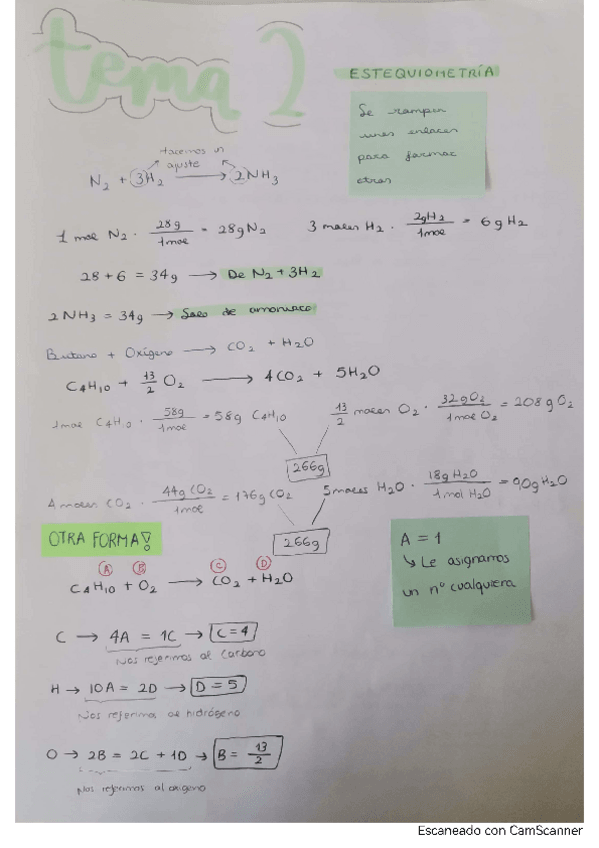 tema 2
ESTEQUIOMETRÍA
Se rompen
unos enlaces
para formar
otros
Hacemos un
ajuste
N₂ + 3H₂ ⟶ 2NH₃
1 mol N₂ · 28g/1mol = 28g N₂
3 moles H₂ · 2gH₂/1mol = 6g H₂
28 + 6 = 34g ⟶ De N₂ + 3H₂
2NH₃ = 34g ⟶ Solo de amoniaco
Butano + Oxígeno ⟶ CO₂ + H₂O
C₄H₁₀ + 13/2 O₂ ⟶ 4CO₂ + 5H₂O
1mol C₄H₁₀ · 58g/1mol = 58g C₄H₁₀
13/2 moles O₂ · 32gO₂/1mol O₂ = 208g O₂
266g
4 moles CO₂ · 44g CO₂/1mol = 176g CO₂
5 moles H₂O · 18g H₂O/1mol H₂O = 90g H₂O
266g
OTRA FORMA!
A = 1
↳ Le asignamos
un nº cualquiera
A B C D
C₄H₁₀ + O₂ ⟶ CO₂ + H₂O
C → 4A = 1C → C = 4
Nos referimos al carbono
H → 10A = 2D → D = 5
Nos referimos al hidrógeno
O → 2B = 2C + 1D → B = 13/2
Nos referimos al oxígeno
Escaneado con CamScanner